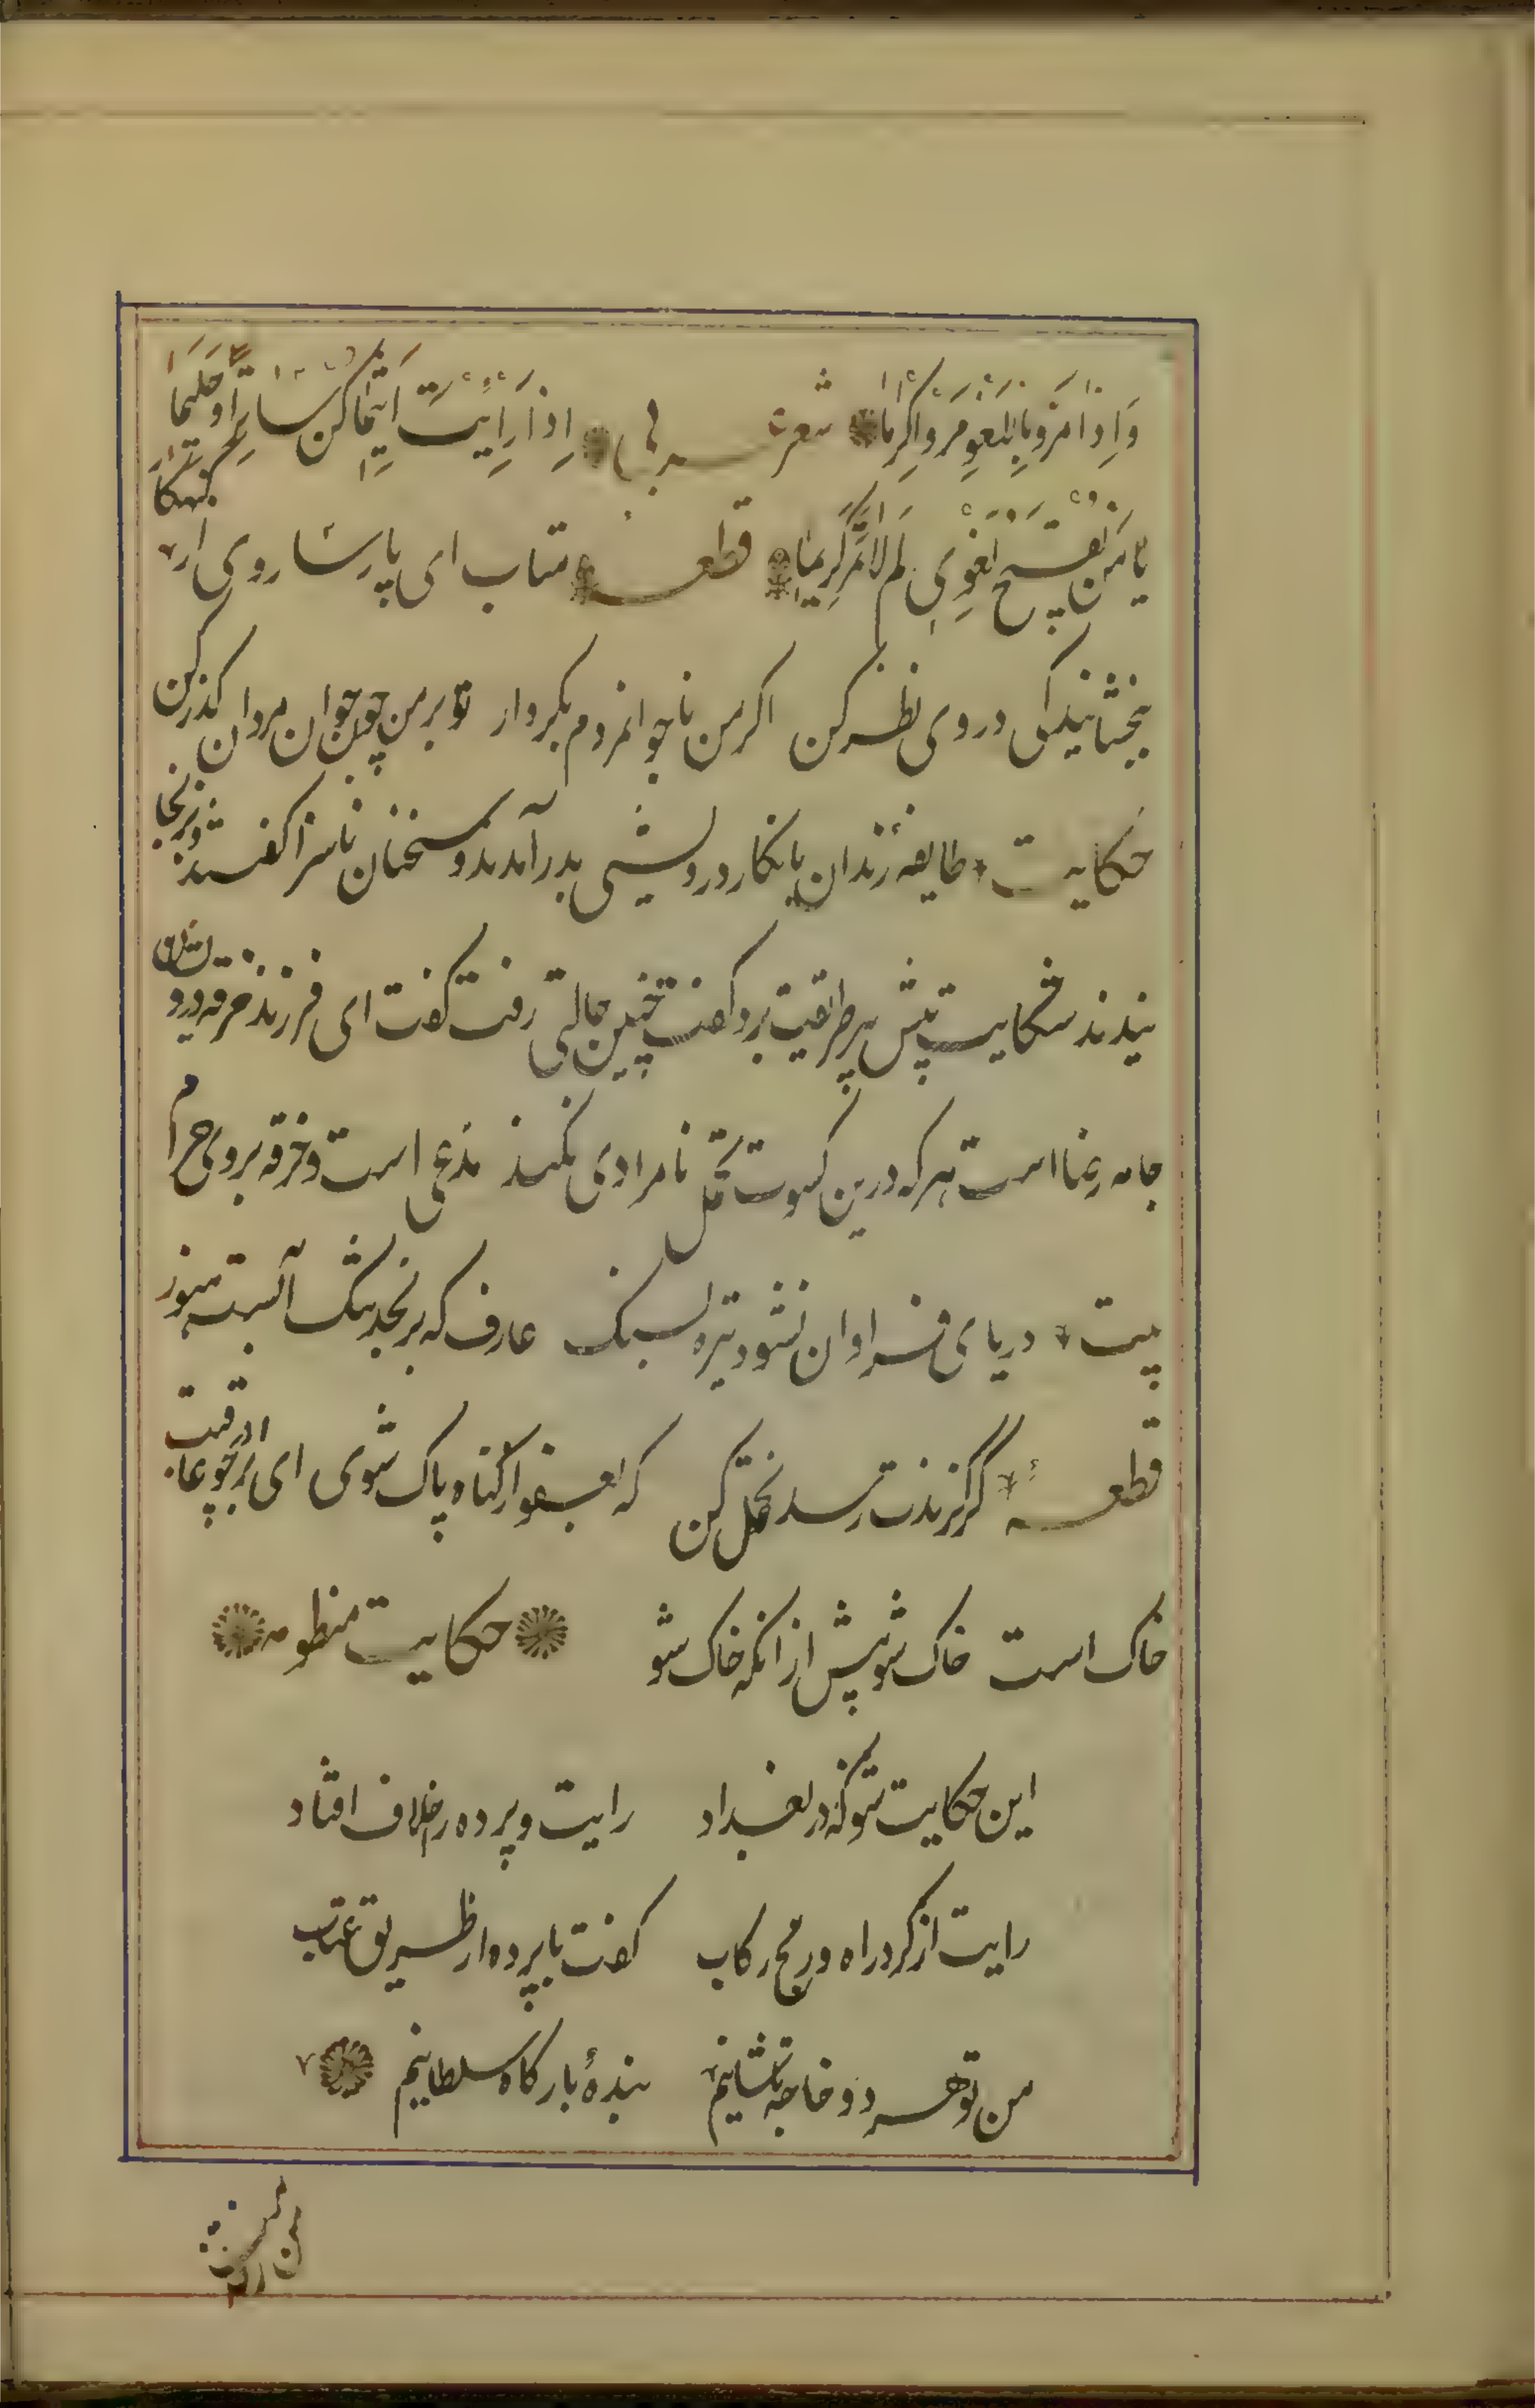 وَاِذَا مَرُّوا بِاللَّغْوِ مَرُّوا كِرَامًا شعر عربی اِذَا رَاَیْتَ اَثِیمًا كُنْ سَاتِرًا وَحَلِیمًا
یَا مَنْ تُقَبِّحُ لَغْوِی لِمَ لَا تَمُرُّ كَرِیمًا قطعه متاب ای پارسا روی از گنهکار
ببخشایندگی در وی نظر کن اکر من ناجوانمردم بکردار تو بر من چون جوان مردان کذر کن
حکایت طایفه رندان بانکار درویشی بدر آمدند و سخنان ناسزا کفتند و برنجا
نیدند شکایت پیش پیر طریقت برد کفت چنین حالتی رفت کفت ای فرزند خرقه درویشان
جامه رضا است هر که درین کسوت تحمل نامرادی نکند مدعی است و خرقه بروی حرام
بیت دریای فراوان نشود تیره بسنک عارف که برنجد تنک آبست هنوز
قطعه کر کزندت رسد تحمل کن که بعفو از کناه پاک شوی ای برادر چو عاقبت
خاک است خاک شو پیش از انکه خاک شو حکایت منظومه
این حکایت شنو که در بغداد رایت و پرده را خلاف افتاد
رایت از کرد راه و رنج رکاب کفت با پرده از طریق عتاب
من تو هر دو خاجه تاشانیم بندهٔ بارکاه سلطانیم
من ز خدمت